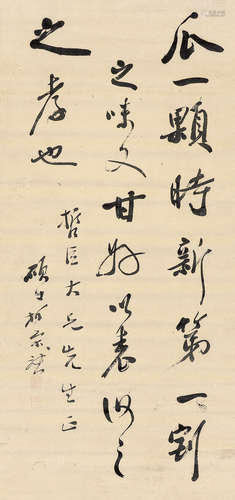 瓜一颗時新第一割
之味又甘好以表
之孝也
哲臣大兄先生正